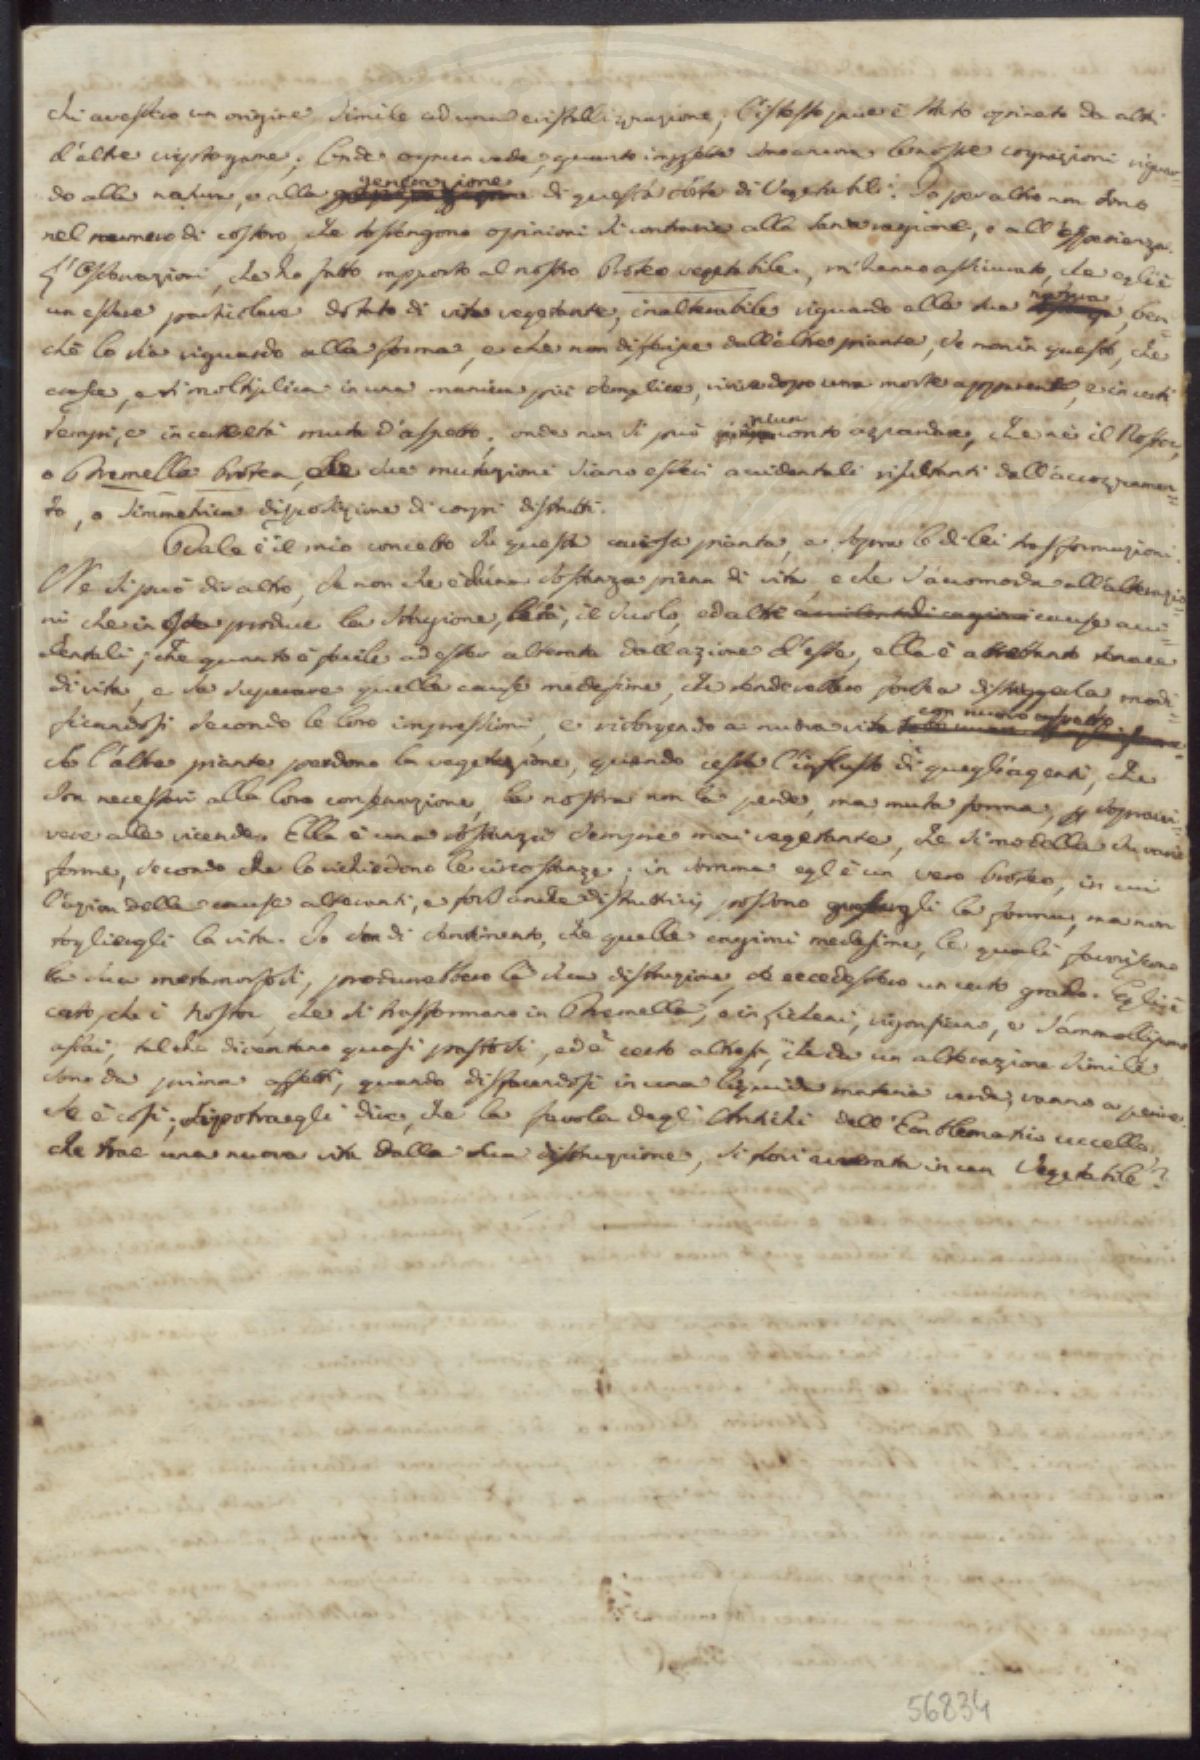 che avessero un origine simile ad una cristallizzazione; l'istesso pure è stato opinato da altri
d'altre criptogame; Onde ognun vede, quanto imperfette sono ancora le nostre cognizioni riguar-
do alla natura, e alla generazione di questa sorte di Vegetabili. Io per altro non sono
nel numero di costoro che sostengono opinioni sì contrarie alla sana ragione, e all'esperienza.
L'Osservazioni, che ho fatto rapporto al nostro Proteo vegetabile, m'hanno assicurato, che egli è
un essere particolare dotato di vita vegetante, inalterabile riguardo alla sua natura, ben-
chè lo sia riguardo alla forma, e che non differisce dall'altre piante, se non in questo, che
cresce, e si moltiplica in una maniera più semplice, vive dopo una morte apparente, e in certi
tempi, e in certe età muta d'aspetto; onde non si può niun conto azzardare, che nè il Nostoc,
o Tremella Protea, nè le sue mutazioni siano esseri accidentali risultanti dall'accozzamen-
to, o simmetrica disposizione di corpi distrutti.
Tale è il mio concetto di questa curiosa pianta, e sopra le di lei trasformazioni.
Ne si può dir altro, se non che è d'una sostanza piena di vita, e che s'accomoda all'alterazio-
ni che in essa produce la stagione, l'età, il suolo, ed altre accidentali cagioni cause acci-
dentali; che quanto è facile ad esser alterata dall'azione d'esse, ella è altrettanto tenace
di vita, e sa superare quelle cause medesime, che tenderebbero forse a distruggerla, modi-
ficandosi secondo le loro impressioni, e risorgendo a nuova vita con nuovo aspetto.
Se l'altre piante perdono la vegetazione, quando cessa l'influsso di quegl'agenti, che
son necessari alla loro conservazione, la nostra non la perde, ma muta forma, per sopravvi-
vere alle vicende. Ella è una sostanza sempre mai vegetante, che si modella su varie
forme, secondo che lo richiedono le circostanze; in somma egl'è un vero Proteo, in cui
l'azion delle cause alteranti, e fors'anche distruttrici, possono guastargli la forma, ma non
togliergli la vita. Io son di sentimento, che quelle cagioni medesime, le quali favoriscono
la sua metamorfosi, produrrebbero la sua distruzione, se eccedessero un certo grado. Egli è
certo, che i Nostoc, che si trasformano in Tremella, e in Licheni, rigonfiano, e s'ammolliscono
assai, tal che diventano quasi pastosi, ed è certo altresì, che da un alterazione simile
sono da prima affetti, quando disfacendosi in una liquida materia verde, vanno a perire.
Se è così, si potrà egli dire, che la favola degl'Antichi dell'Emblematico uccello,
che trae una nuova vita dalla sua distruzione, si trovi avverata in un Vegetabile?
56834